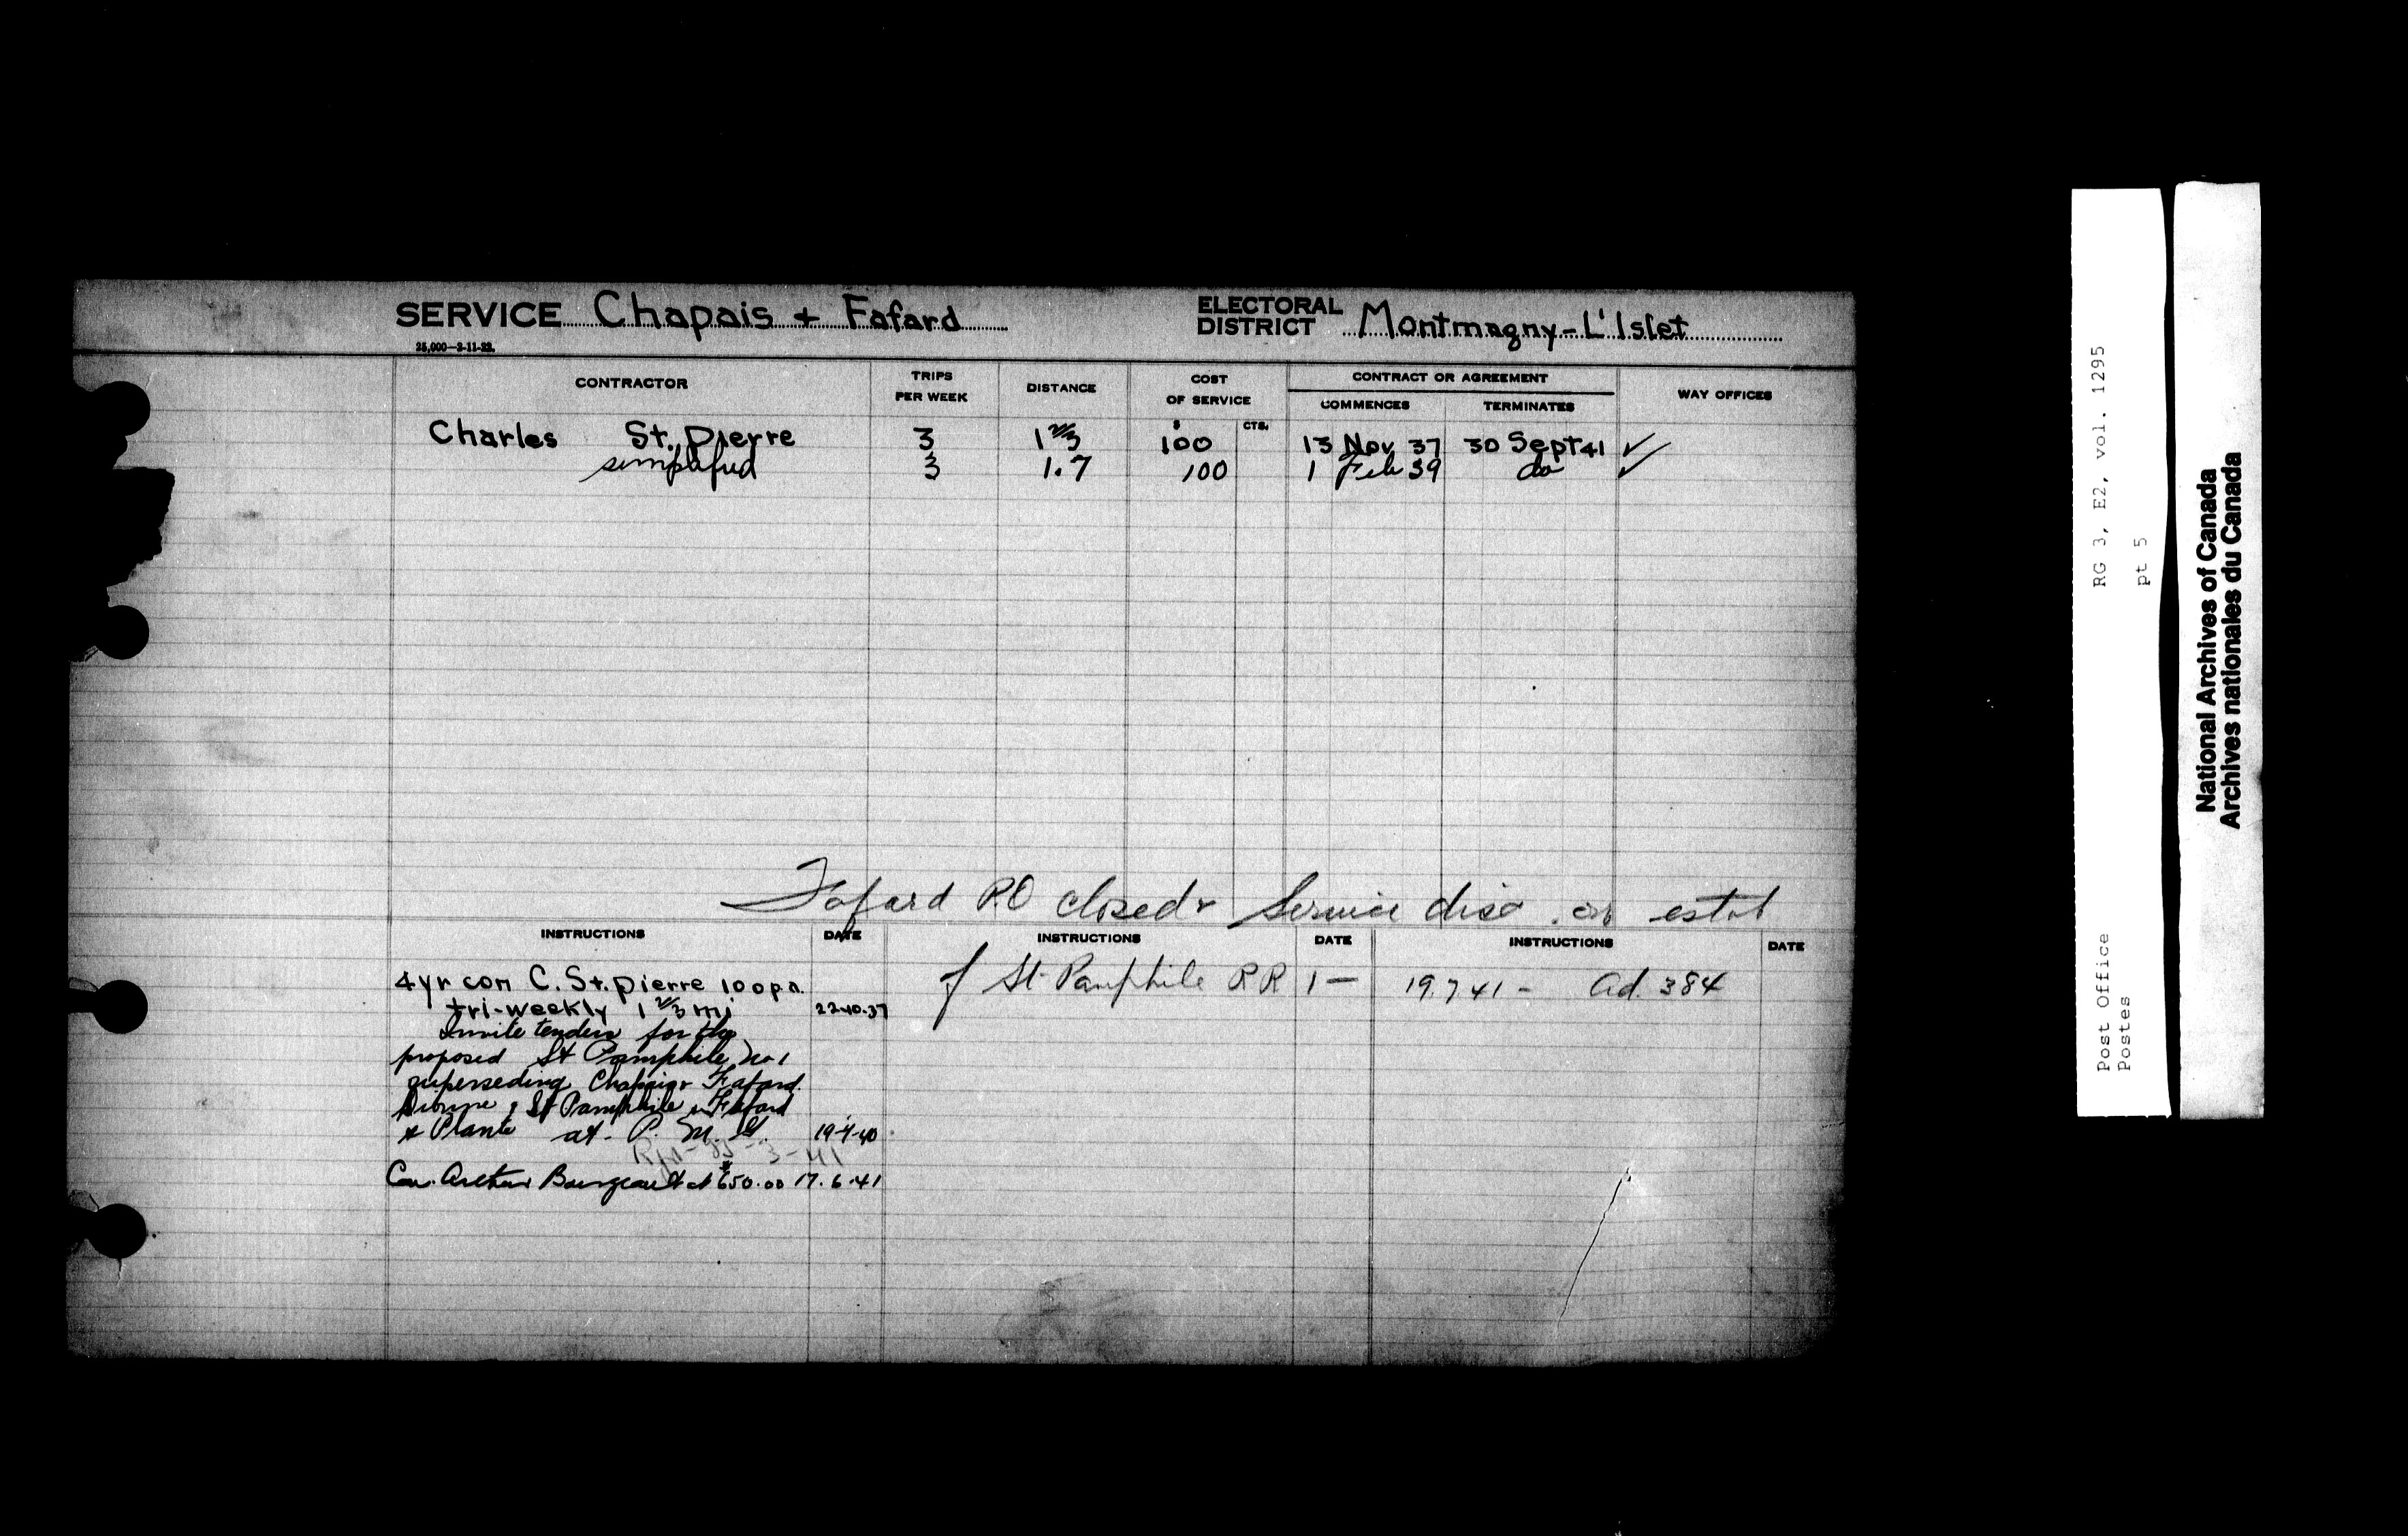 SERVICE Chapais & Fafard
ELECTORAL DISTRICT Montmagny-L'Islet
25,000—2-11-22.
CONTRACTOR TRIPS PER WEEK DISTANCE COST OF SERVICE CONTRACT OR AGREEMENT COMMENCES TERMINATES WAY OFFICES
$ CTS.
Charles St. Pierre 3 1 2/3 100 13 Nov 37 30 Sept 41 ✓
simplified 3 1.7 100 1 Feb 39 do ✓
Fafard P.O closed & Service disc. on estab
INSTRUCTIONS DATE INSTRUCTIONS DATE INSTRUCTIONS DATE
of St Pamphile RR 1 — 19.7.41 - Ad. 384
4 yr con C. St. Pierre 100 p.a.
tri-weekly 1 2/3 mi 22-10-37
Invite tenders for the
proposed St Pamphile No 1
superseding Chapais & Fafard.
Dionne & St Pamphile & Fafard
& Plante at P. M. G. 19-4-40
3-41
Con. Arthur Bourgeault at $650.00 17.6.41
RG 3, E2, vol. 1295
pt 5
Post Office
Postes
National Archives of Canada
Archives nationales du Canada